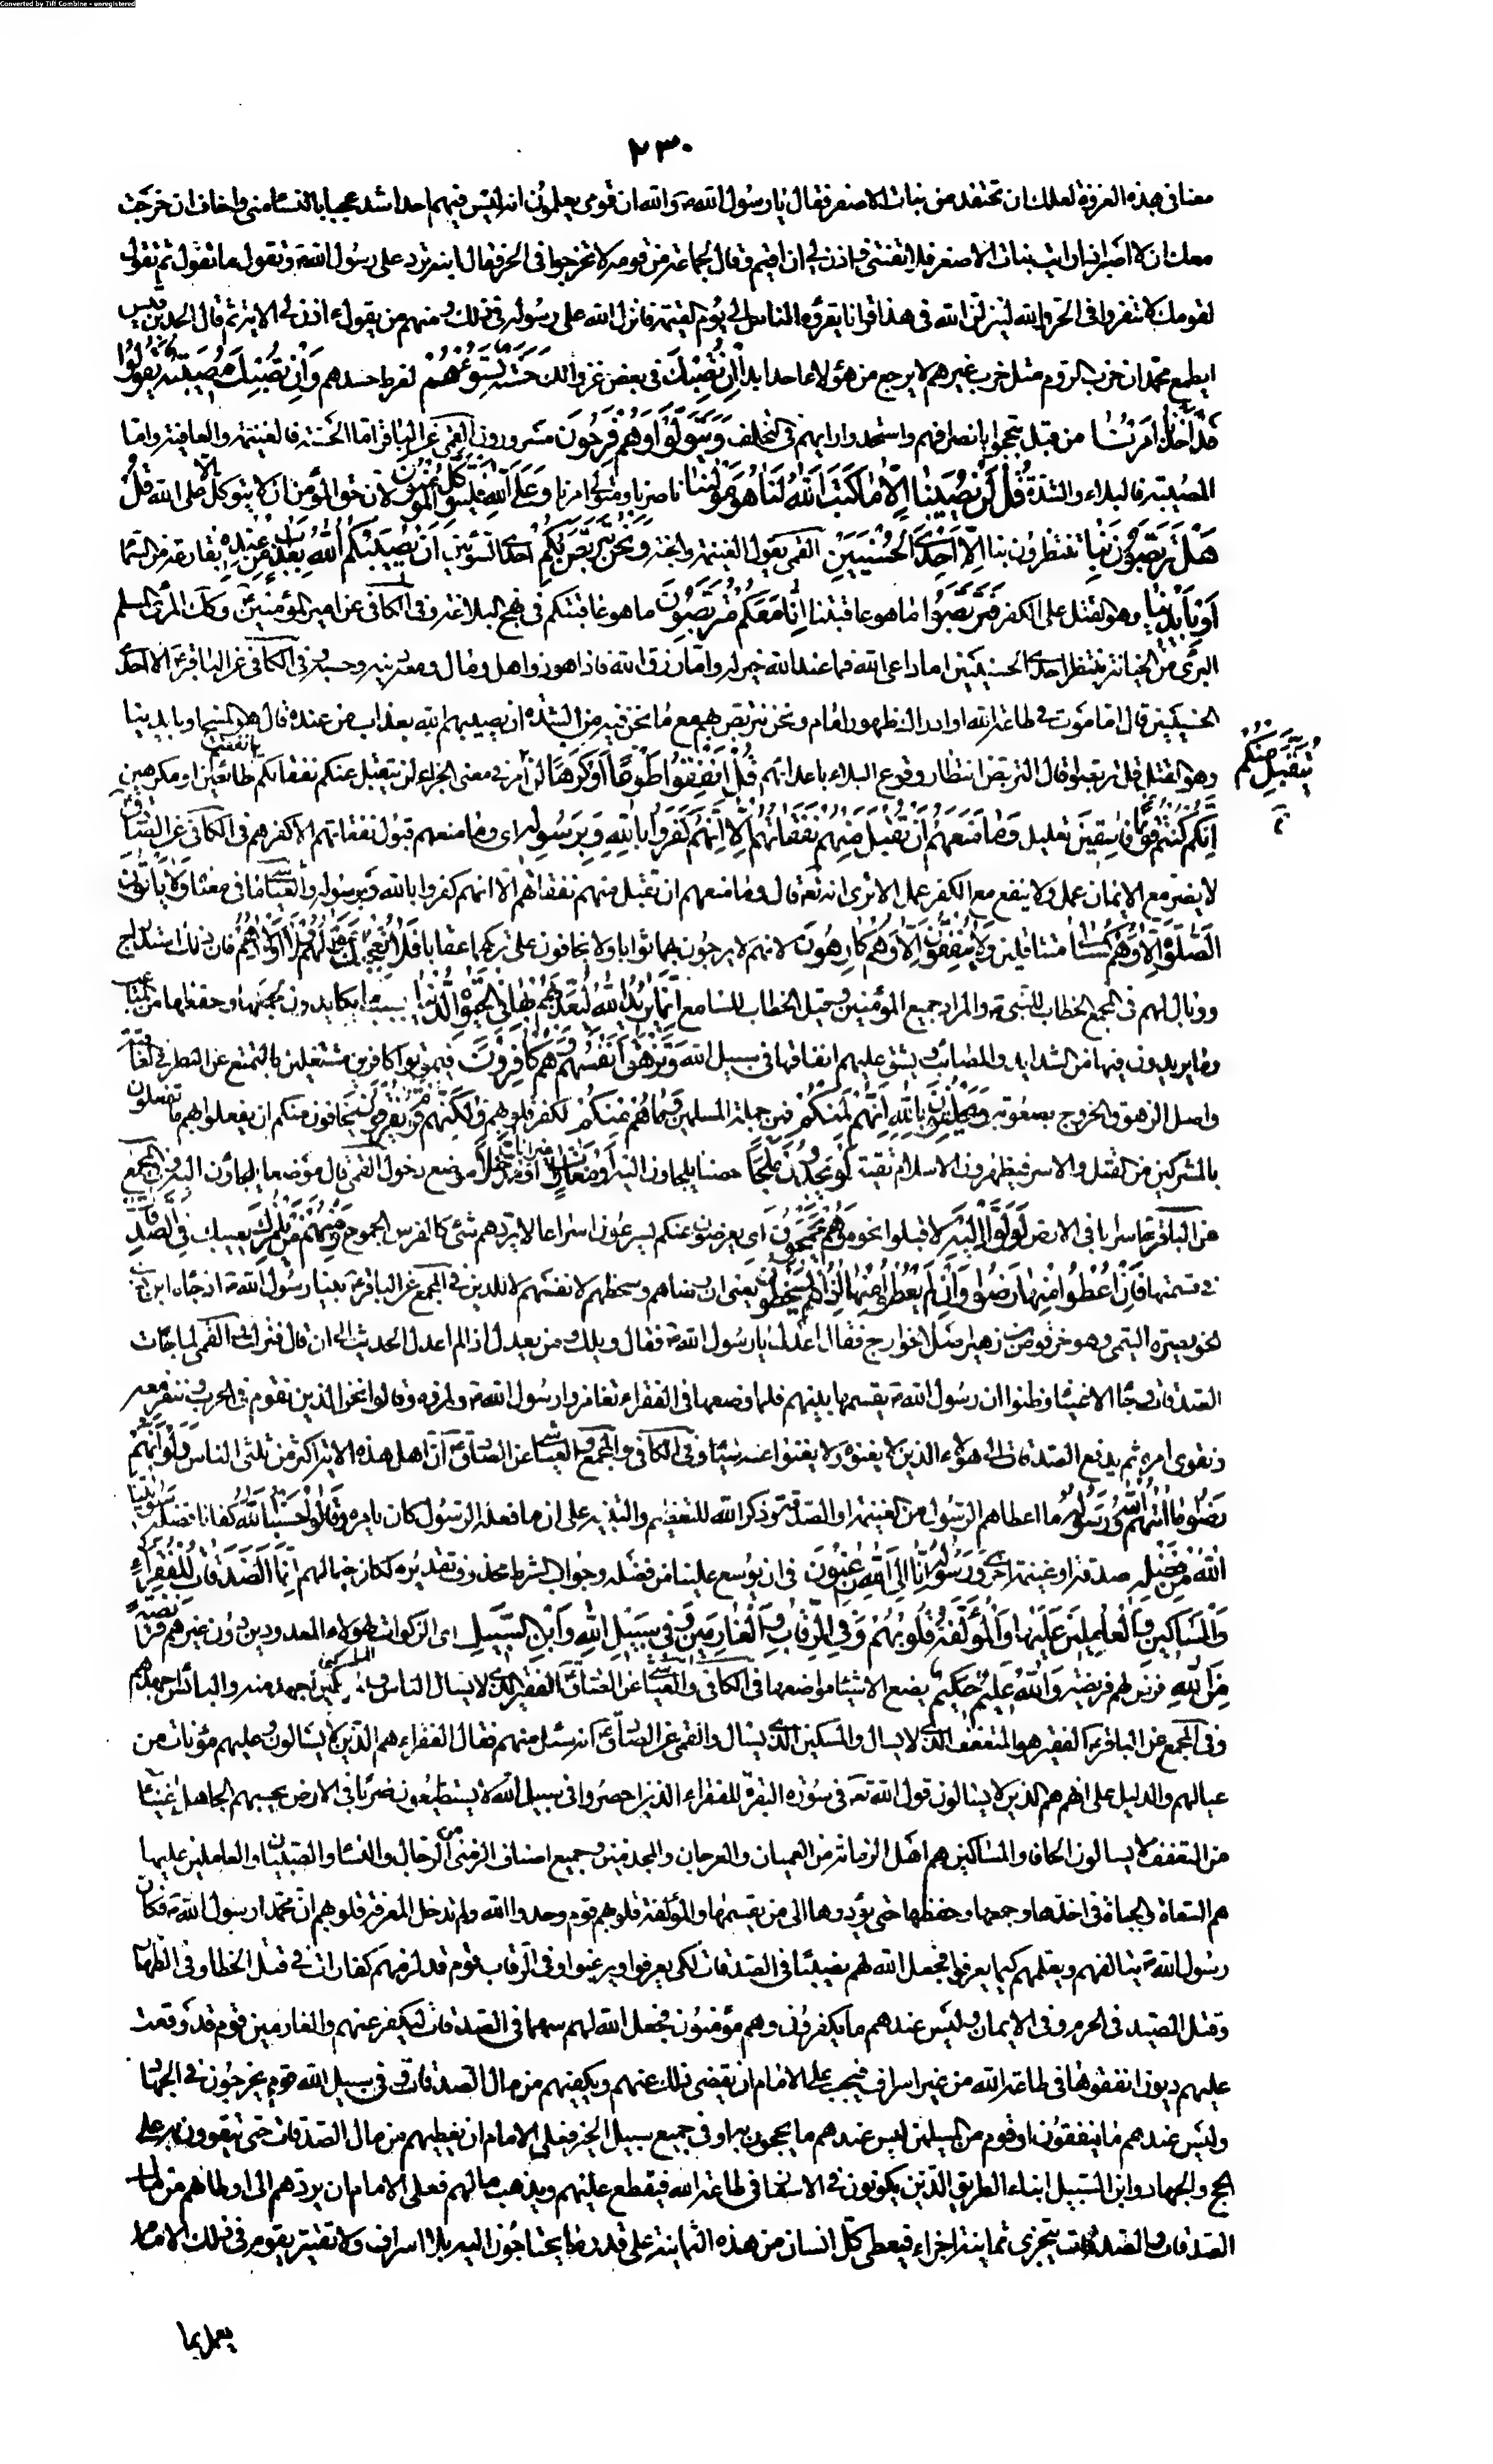 Converted by Tiff Combine - unregistered
٢٣٠
معنا في هذه الغزوة لعلك ان تحتفد من بنات الاصفر فقال يا رسول الله ص والله ان قومى يعلمون انه ليس فيهم احد اشد عجبا بالنساء منى واخاف ان خرجت
معك ان لا اصبر اذا رايت بنات الاصفر فلا تفتنى فاذن لى ان اقيم وقال لجماعة من قومه لا تخرجوا فى الحر فقال ابنه ترد على رسول الله ص وتقول ما تقول ثم تقول
لقومك لا تنفروا فى الحر والله لينزلن الله فى هذا قرانا يقرؤه الناس الى يوم القيمة فانزل الله على رسوله فى ذلك ومنهم من يقول ائذن لى الاية ثم قال الجد بن قيس
ايطمع محمد ان حرب الروم مثل حرب غيرهم لا يرجع من هؤلاء احد ابدا اِنْ تُصِبْكَ فى بعض غزواتك حَسَنَةٌ تَسُؤْهُمْ لفرط حسدهم وَاِنْ تُصِبْكَ مُصِيبَةٌ يَقُولُوا
قَدْ اَخَذْنا اَمْرَنا مِنْ قَبْلُ تبجحوا بانصرافهم واستحمدوا رايهم فى التخلف وَيَتَوَلَّوْا وَهُمْ فَرِحُونَ مسرورون القمى عن الباقر اما الحسنة فالغنيمة والعافية واما
المصيبة فالبلاء والشدة قُلْ لَنْ يُصِيبَنا اِلّا ما كَتَبَ اللهُ لَنا هُوَ مَوْلٰينا ناصرنا ومتولى امرنا وَعَلَى اللهِ فَلْيَتَوَكَّلِ الْمُؤْمِنُونَ لان حق المؤمن ان لا يتوكل الا على الله قُلْ
هَلْ تَرَبَّصُونَ بِنا تنتظرون بنا اِلّا اِحْدَى الْحُسْنَيَيْنِ القمى يقول الغنيمة والجنة وَنَحْنُ نَتَرَبَّصُ بِكُمْ احدى السوئيين اَنْ يُصِيبَكُمُ اللهُ بِعَذابٍ مِنْ عِنْدِهِ بقارعة من السماء
اَوْ بِاَيْدِينا وهو القتل على الكفر فَتَرَبَّصُوا ما هو عاقبتنا اِنّا مَعَكُمْ مُتَرَبِّصُونَ ما هو عاقبتكم فى نهج البلاغة وفى الكافى عن امير المؤمنين ع وكذلك المرء المسلم
البرىء من الخيانة ينتظر احدى الحسنيين اما داعى الله فما عند الله خير له واما رزق الله فاذا هو ذو اهل ومال ومعه دينه وحسبه وفى الكافى عن الباقر ع الا احدى
الحسنيين قال اما موت فى طاعة الله او ادراك ظهور امام ونحن نتربص بهم مع ما نحن فيه من الشدة ان يصيبهم الله بعذاب من عنده قال هو المسخ او بايدينا
وهو القتل قل تربصوا قال التربص انتظار وقوع البلاء باعدائهم قُلْ اَنْفِقُوا طَوْعًا اَوْ كَرْهًا لَنْ يُتَقَبَّلَ مِنْكُمْ امر فى معنى الخبر اى لن يتقبل منكم نفقاتكم انفقتم طائعين او مكرهين
اِنَّكُمْ كُنْتُمْ قَوْمًا فاسِقِينَ تعليل وَما مَنَعَهُمْ اَنْ تُقْبَلَ مِنْهُمْ نَفَقاتُهُمْ اِلّا اَنَّهُمْ كَفَرُوا بِاللهِ وَبِرَسُولِهِ اى وما منعهم قبول نفقاتهم الا كفرهم فى الكافى عن الصادق
لا يضر مع الايمان عمل ولا ينفع مع الكفر عمل الا ترى انه تعالى قال وما منعهم ان تقبل منهم نفقاتهم الا انهم كفروا بالله وبرسوله والعياشى ما فى معناه وَلا يَأْتُونَ
الصَّلٰوةَ اِلّا وَهُمْ كُسالى متثاقلين وَلا يُنْفِقُونَ اِلّا وَهُمْ كارِهُونَ لانهم لا يرجون بهما ثوابا ولا يخافون على تركهما عقابا فَلا تُعْجِبْكَ اَمْوالُهُمْ وَلا اَوْلادُهُمْ فان ذلك استدراج
ووبال لهم فى المجمع الخطاب للنبى ص والمراد جميع المؤمنين ويحتمل الخطاب للسامع اِنَّما يُرِيدُ اللهُ لِيُعَذِّبَهُمْ بِها فِى الْحَيٰوةِ الدُّنْيا بسبب ما يكابدون بجمعها وحفظها من المتاعب
وما يريدون فيها من الشدايد والمصائب ويشق عليهم انفاقها فى سبيل الله وَتَزْهَقَ اَنْفُسُهُمْ وَهُمْ كافِرُونَ فيموتوا كافرين مشتغلين بالتمتع عن النظر فى العاقبة
واصل الزهوق الخروج بصعوبة وَيَحْلِفُونَ بِاللهِ اِنَّهُمْ لَمِنْكُمْ لمن جملة المسلمين وَما هُمْ مِنْكُمْ لكفر قلوبهم وَلٰكِنَّهُمْ قَوْمٌ يَفْرَقُونَ يخافون منكم ان تفعلوا بهم ما تفعلون
بالمشركين من القتل والاسر فيظهرون الاسلام تقية لَوْ يَجِدُونَ مَلْجَأً حصنا يلجاون اليه اَوْ مَغاراتٍ غيرانا اَوْ مُدَّخَلًا موضع دخول القمى قال موضعا يلجاون اليه فى المجمع
عن الباقر ع اسرابا فى الارض لَوَلَّوْا اِلَيْهِ لاقبلوا نحوه وَهُمْ يَجْمَحُونَ اى يعرضون عنكم يسرعون اسراعا لا يردهم شىء كالفرس الجموح وَمِنْهُمْ مَنْ يَلْمِزُكَ يعيبك فِى الصَّدَقاتِ
فى قسمتها فَاِنْ اُعْطُوا مِنْها رَضُوا وَاِنْ لَمْ يُعْطَوْا مِنْها اِذا هُمْ يَسْخَطُونَ يعنى ان رضاهم وسخطهم لانفسهم لا للدين فى المجمع عن الباقر ع بينا رسول الله ص اذ جاءه ابن ابى
الخويصرة التميمى وهو حرقوص بن زهير اصل الخوارج فقال اعدل يا رسول الله ص فقال ويلك ومن يعدل اذا لم اعدل الحديث الى ان قال فنزلت القمى لما جاءت
الصدقات وجاء الاغنياء وظنوا ان رسول الله ص يقسمها بينهم فلما وضعها فى الفقراء تغامزوا رسول الله ص ولمزوه وقالوا نحن الذين نقوم فى الحرب وننفر معه
ونقوى امره ثم يدفع الصدقات الى هؤلاء الذين لا يعينونه ولا يغنون عنه شيئا وفى الكافى والمجمع والعياشى عن الصادق ع ان اهل هذه الاية اكثر من ثلثى الناس وَلَوْ اَنَّهُمْ
رَضُوا ما اٰتٰيهُمُ اللهُ وَرَسُولُهُ ما اعطاهم الرسول من الغنيمة او الصدقة وذكر الله للتعظيم والتنبيه على ان ما فعله الرسول كان بامره وَقالُوا حَسْبُنَا اللهُ كفانا فضله سَيُؤْتِينَا
اللهُ مِنْ فَضْلِهِ صدقة او غنيمة اخرى وَرَسُولُهُ اِنّا اِلَى اللهِ راغِبُونَ فى ان يوسع علينا من فضله وجواب الشرط محذوف تقديره لكان خيرا لهم اِنَّمَا الصَّدَقاتُ لِلْفُقَراءِ
وَالْمَساكِينِ وَالْعامِلِينَ عَلَيْها وَالْمُؤَلَّفَةِ قُلُوبُهُمْ وَفِى الرِّقابِ وَالْغارِمِينَ وَفِى سَبِيلِ اللهِ وَابْنِ السَّبِيلِ اى الزكوات لهؤلاء المعدودين دون غيرهم فَرِيضَةً
مِنَ اللهِ فرض لهم فريضة وَاللهُ عَلِيمٌ حَكِيمٌ يضع الاشياء مواضعها فى الكافى والعياشى عن الصادق ع الفقير الذى لا يسال الناس والمسكين اجهد منه والبائس اجهدهم
وفى المجمع عن الباقر ع الفقير هو المتعفف الذى لا يسال والمسكين الذى يسال والقمى عن الصادق ع انه سئل عنهم فقال الفقراء هم الذين لا يسالون وعليهم مؤنات من
عيالهم والدليل على انهم هم الذين لا يسالون قول الله تعالى فى سورة البقرة للفقراء الذين احصروا فى سبيل الله لا يستطيعون ضربا فى الارض يحسبهم الجاهل اغنياء
من التعفف لا يسالون الناس الحافا والمساكين هم اهل الزمانة من العميان والعرجان والمجذومين وجميع اصناف الزمنى من الرجال والنساء والصبيان والعاملين عليها
هم السعاة والجباة فى اخذها وجمعها وحفظها حتى يؤدوها الى من يقسمها والمؤلفة قلوبهم قوم وحدوا الله ولم تدخل المعرفة قلوبهم ان محمدا رسول الله ص فكان
رسول الله ص يتالفهم ويعلمهم كيما يعرفوا فجعل الله لهم نصيبا فى الصدقات لكى يعرفوا ويرغبوا وفى الرقاب قوم قد لزمهم كفارات فى قتل الخطاء وفى الظهار
وقتل الصيد فى الحرم وفى الايمان وليس عندهم ما يكفرون وهم مؤمنون فجعل الله لهم سهما فى الصدقات ليكفر عنهم والغارمين قوم قد وقعت
عليهم ديون انفقوها فى طاعة الله من غير اسراف فيجب على الامام ان يقضى ذلك عنهم ويكفيهم من مال الصدقات وفى سبيل الله قوم يخرجون فى الجهاد
وليس عندهم ما ينفقون او قوم من المسلمين ليس عندهم ما يحجون به او فى جميع سبيل الخير فعلى الامام ان يعطيهم من مال الصدقات حتى يتقوون به على
الحج والجهاد وابن السبيل ابناء الطريق الذين يكونون فى الاسفار فى طاعة الله فيقطع عليهم ويذهب مالهم فعلى الامام ان يردهم الى اوطانهم من مال
الصدقات والصدقات يتجزى ثمانية اجزاء فيعطى كل انسان من هذه الثمانية على قدر ما يحتاجون اليه بلا اسراف ولا تقتير يقوم فى ذلك الامام
يعمل بما